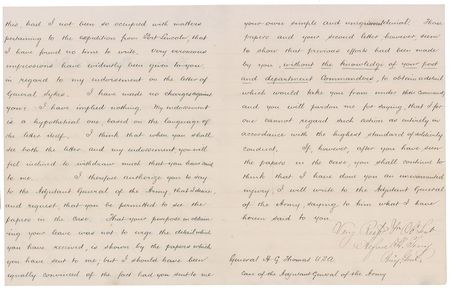 this, had I not been so occupied with matters
pertaining to the expedition from Fort Lincoln, that
I have found no time to write. Very erroneous
impressions have evidently been given to you,
in regard to my endorsement on the letter of
General Sykes. I have made no charges against
you: I have implied nothing. My endorsement
is a hypothetical one, based on the language of
the letter itself. I think that when you shall
see both the letter and my endorsement you will
feel inclined to withdraw much that you have said
to me. I therefore authorize you to say
to the Adjutant General of the Army, that I desire,
and request, that you be permitted to see the
papers in the case. That your purpose in obtain-
ing your leave was not to urge the detail which
you have received, is shown by the papers which
you have sent to me; but I should have been
equally convinced of the fact had you sent to me
your own simple and denial. These
papers and your second letter however, seem
to show that previous efforts had been made
by you, without the knowledge of your post
and department Commanders, to obtain a detail
which would take you from under their Command,
and you will pardon me for saying, that I for
one cannot regard such action as entirely in
accordance with the highest standard of soldierly
conduct. If, however, after you have seen
the papers in the case you shall continue to
think that I have done you an unwarranted
injury, I will write to the Adjutant General
of the Army, saying to him what I have
herein said to you.
Very Resp. Yr. Ob. Svt
Alfred H. Terry
Brig. Genl.
General H G Thomas U.S.A.
Care of the Adjutant General of the Army